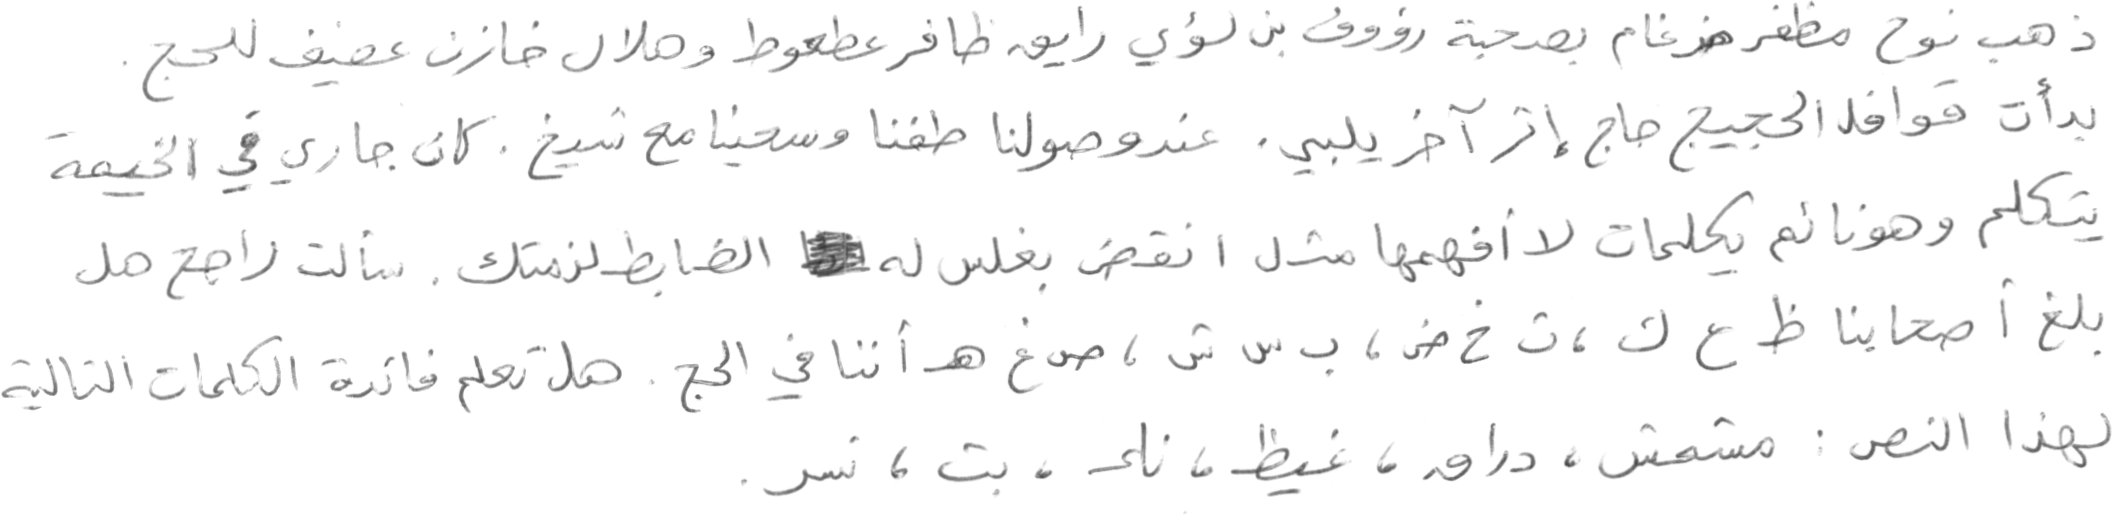 ذهب نوح مظفر ضرغام بصحبة رؤوف بن لؤي رايق ظافر عطعوط وهلال خازن عفيف للحج .
بدأت قوافل الحجيج حاج إثر آخر يلبي . عند وصولنا طفنا وسعينا مع شيخ . كان جاري في الخيمة
يتكلم وهو نائم بكلمات لا أفهمها مثل انقض بغلس له الضابط لزمتك . سألت راجح هل
بلغ أصحابنا ظ ع ك ، ث خ ض ، ب س ش ، ص غ هـ أننا في الحج . هل تعلم فائدة الكلمات التالية
لهذا النص : مشمش ، دراق ، غيظ ، ناء ، بت ، نسر .